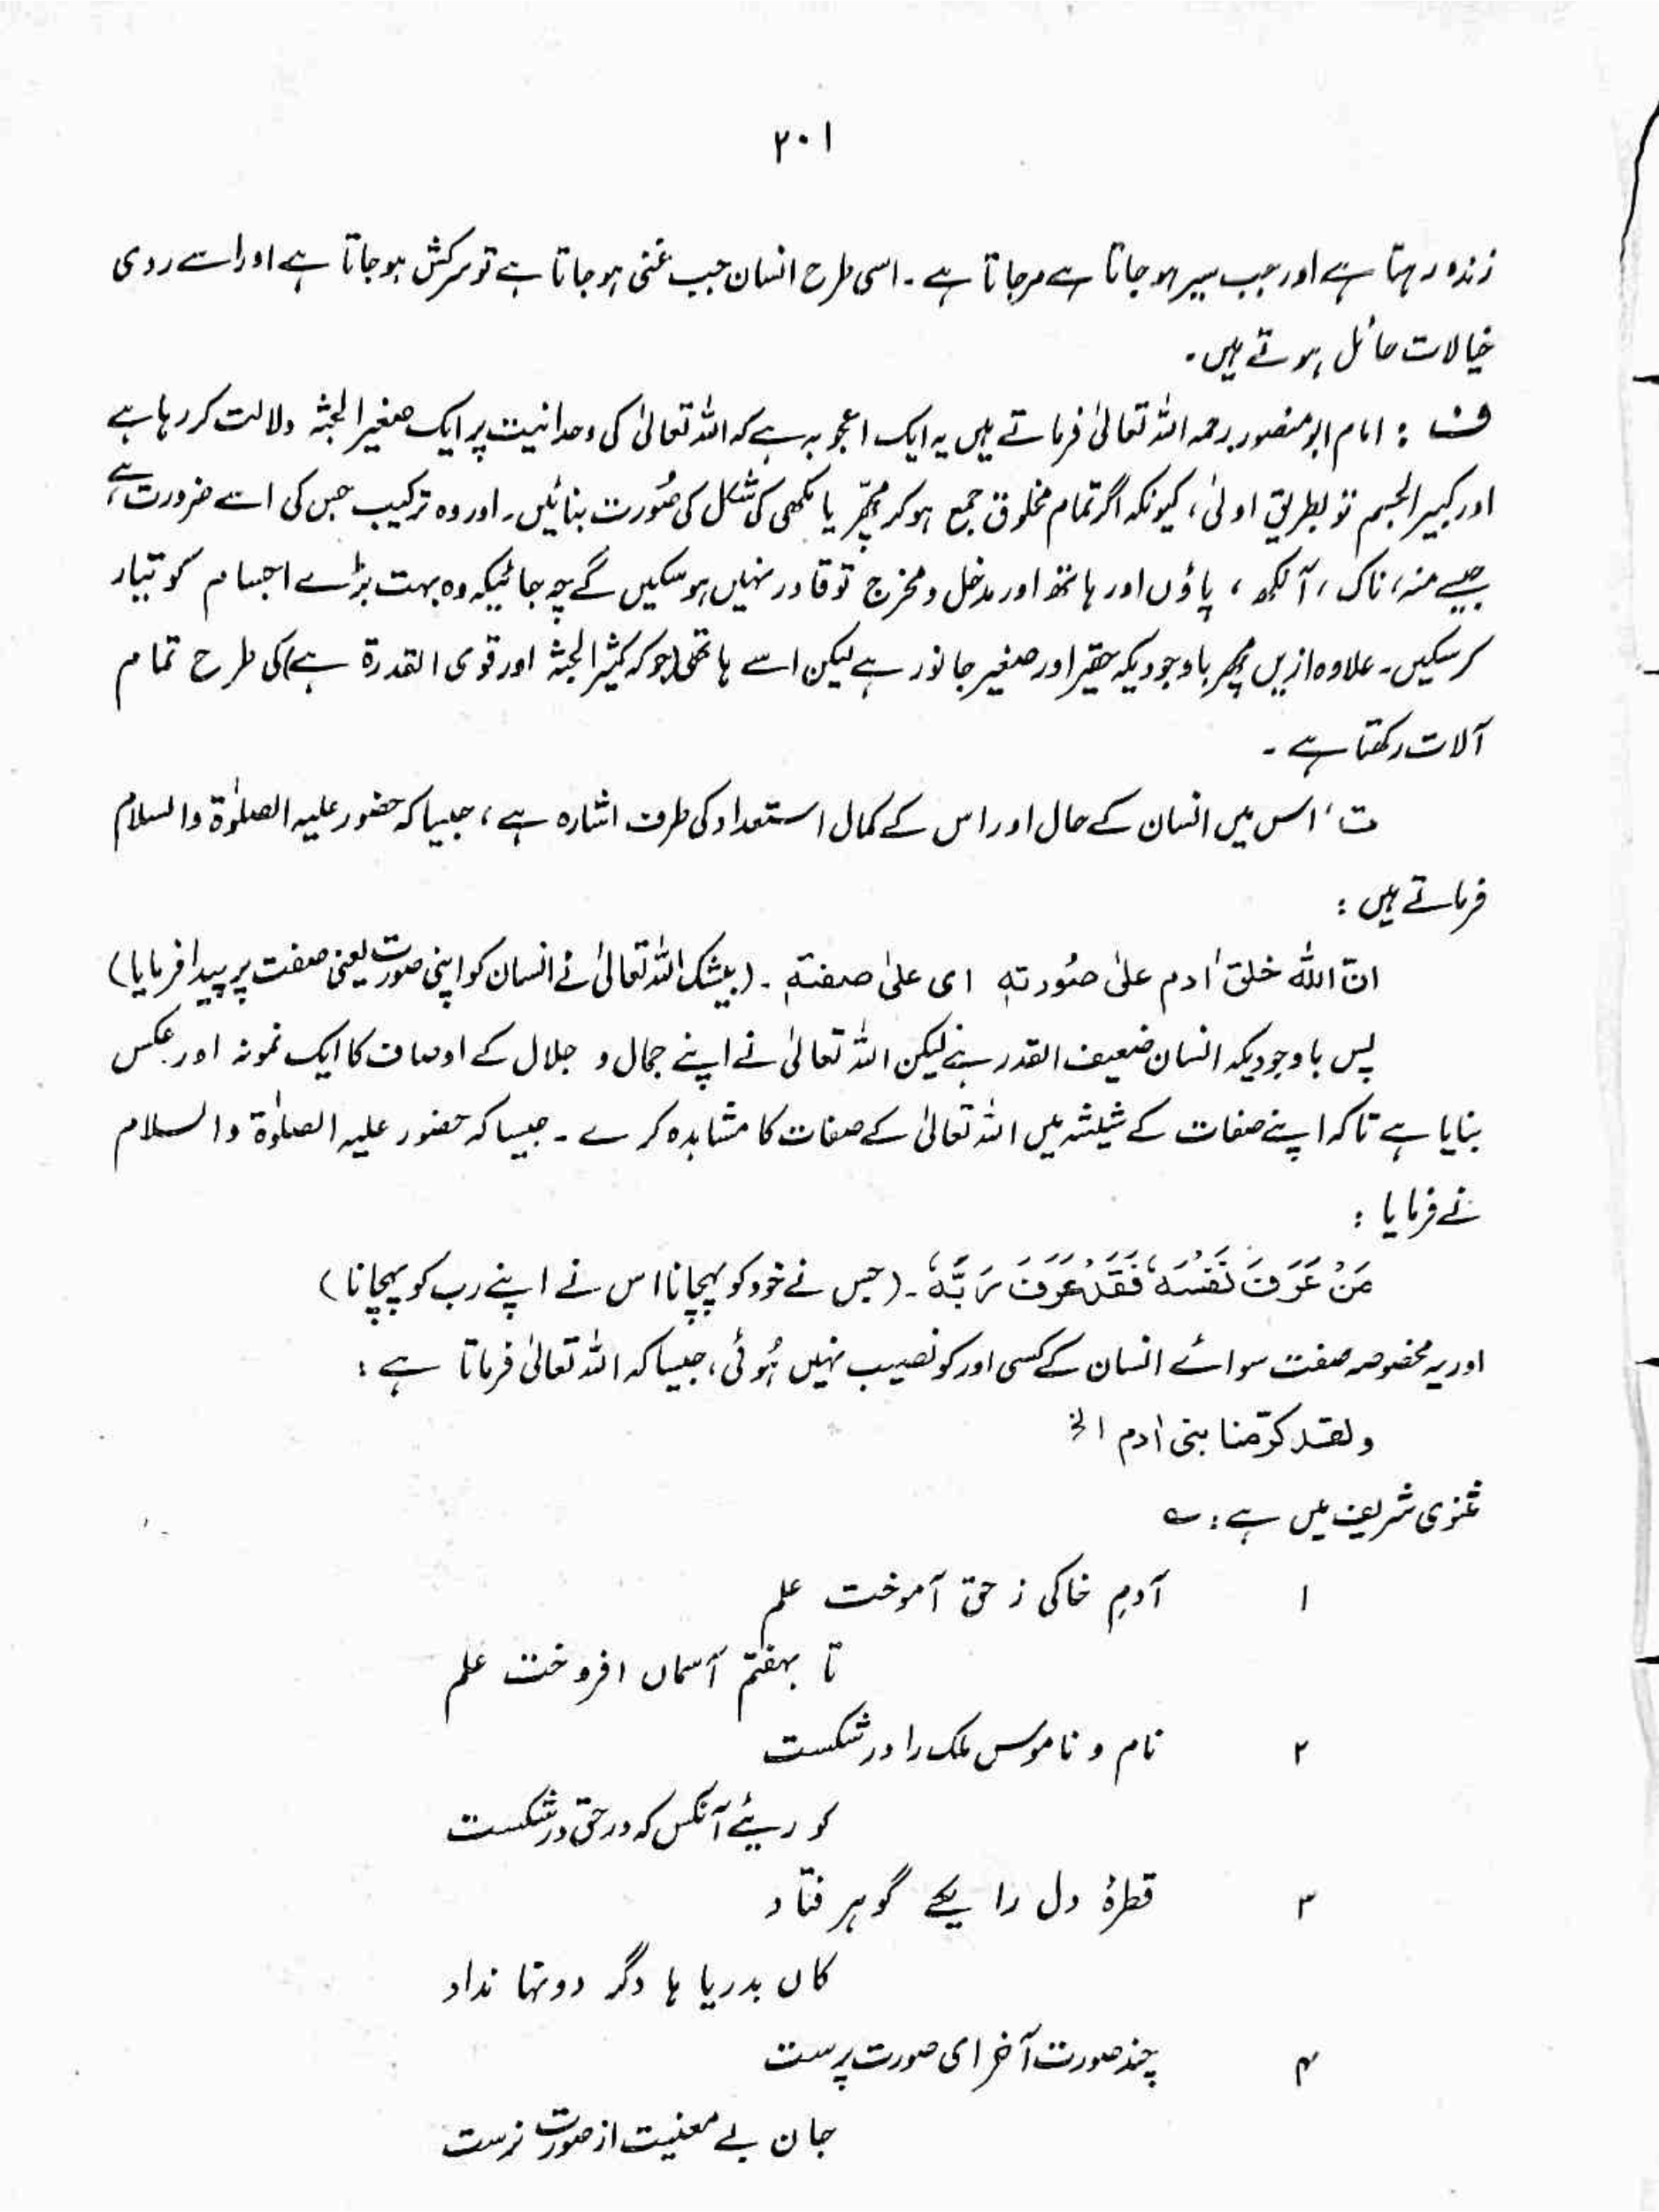 ۲۰۱
زندہ رہتا ہے اور جب سیر ہو جاتا ہے مرجاتا ہے ۔ اسی طرح انسان جب غنی ہو جاتا ہے تو سرکش ہو جاتا ہے اور اسے ردی
خیالات حائل ہوتے ہیں ۔
ف : امام ابو منصور رحمہ اللہ تعالیٰ فرماتے ہیں یہ ایک اعجوبہ ہے کہ اللہ تعالیٰ کی وحدانیت پر ایک صغیر الجثہ دلالت کر رہا ہے
اور کبیر الجسم تو بطریق اولیٰ ، کیونکہ اگر تمام مخلوق جمع ہو کر مچھّر یا مکھی کی شکل کی صُورت بنائیں ۔ اور وہ ترکیب جس کی اسے ضرورت ہے ،
جیسے منہ ، ناک ، آنکھ ، پاؤں اور ہاتھ اور مدخل و مخرج تو قادر نہیں ہو سکیں گے چہ جائیکہ وہ بہت بڑے اجسام کو تیار
کر سکیں ۔ علاوہ ازیں مچھر باوجودیکہ حقیر اور صغیر جانور ہے لیکن اسے ہاتھی (جو کہ کثیر الجثہ اور قوی القدرۃ ہے) کی طرح تمام
آلات رکھتا ہے ۔
ت ' اس میں انسان کے حال اور اس کے کمال استعداد کی طرف اشارہ ہے ، جیسا کہ حضور علیہ الصلوٰۃ والسلام
فرماتے ہیں :
انّ اللہ خلق اٰدم علیٰ صُورتہٖ ای علیٰ صفتہٖ ۔ (بیشک اللہ تعالیٰ نے انسان کو اپنی صورت یعنی صفت پر پیدا فرمایا)
پس باوجودیکہ انسان ضعیف القدر ہے لیکن اللہ تعالیٰ نے اپنے جمال و جلال کے اوصاف کا ایک نمونہ اور عکس
بنایا ہے تاکہ اپنے صفات کے شیشہ میں اللہ تعالیٰ کے صفات کا مشاہدہ کرے ۔ جیسا کہ حضور علیہ الصلوٰۃ والسلام
نے فرمایا :
مَنْ عَرَفَ نَفْسَہٗ فَقَدْ عَرَفَ رَبَّہٗ ۔ (جس نے خود کو پہچانا اس نے اپنے رب کو پہچانا)
اور یہ مخصوصہ صفت سوائے انسان کے کسی اور کو نصیب نہیں ہُوئی ، جیسا کہ اللہ تعالیٰ فرماتا ہے :
ولقد کرّمنا بنی اٰدم الخ
مثنوی شریف میں ہے : ؎
۱ آدمِ خاکی ز حق آموخت علم
تا بہفتم آسماں افروخت علم
۲ نام و ناموس ملک را درشکست
کورئیے آنکس کہ در حق درشکست
۳ قطرۂ دل را یکے گوہر فتاد
کاں بدریا ہا دگر دونہا نداد
۴ چند صورت آخر ای صورت پرست
جان بے معنیت از صورت نرست